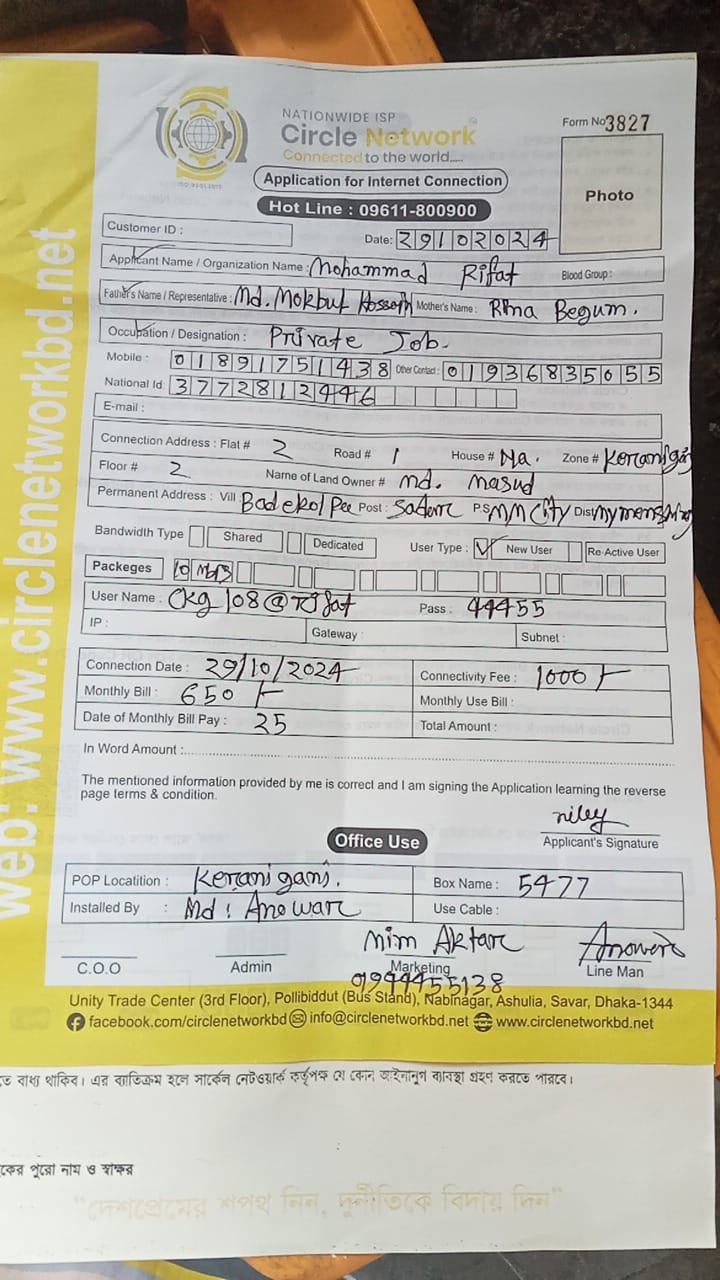 NATIONWIDE ISP
Circle Network
Connected to the world.....
ISO 9001:2015
Form No 3827
Application for Internet Connection
Hot Line : 09611-800900
Photo
Customer ID :
Date: 29102024
Applicant Name / Organization Name : Mohammad Rifat Blood Group :
Father's Name / Representative : Md. Mokbul Hossain Mother's Name : Rina Begum.
Occupation / Designation : Private Job.
Mobile : 01891751438 Other Contact : 01936835055
National Id: 3772812446
E-mail :
Connection Address : Flat # 2 Road # 1 House # Na. Zone # Keranigonj
Floor # 2 Name of Land Owner # md. masud
Permanent Address : Vill Post : Sadar PS MM City Dist Mymensing
Bandwidth Type Shared Dedicated User Type : ✓ New User Re-Active User
Packeges 10 Mbps
User Name : Ckg108@rifat Pass : 44455
IP : Gateway : Subnet :
Connection Date : 29/10/2024 Connectivity Fee : 1000/-
Monthly Bill : 650/- Monthly Use Bill :
Date of Monthly Bill Pay : 25 Total Amount :
In Word Amount :
The mentioned information provided by me is correct and I am signing the Application learning the reverse
page terms & condition.
Applicant's Signature
Office Use
POP Locatition : Keraniganj. Box Name : 5477
Installed By : Md: Anowar Use Cable :
Mim Aktar Anowar
C.O.O Admin Marketing Line Man
01944455138
Unity Trade Center (3rd Floor), Pollibiddut (Bus Stand), Nabinagar, Ashulia, Savar, Dhaka-1344
facebook.com/circlenetworkbd info@circlenetworkbd.net www.circlenetworkbd.net
web: www.circlenetworkbd.net
তে বাধ্য থাকিব। এর ব্যতিক্রম হলে সার্কেল নেটওয়ার্ক কর্তৃপক্ষ যে কোন আইনানুগ ব্যবস্থা গ্রহণ করতে পারবে।
কের পুরো নাম ও স্বাক্ষর
“দেশপ্রেমের শপথ নিন, দুর্নীতিকে বিদায় দিন”